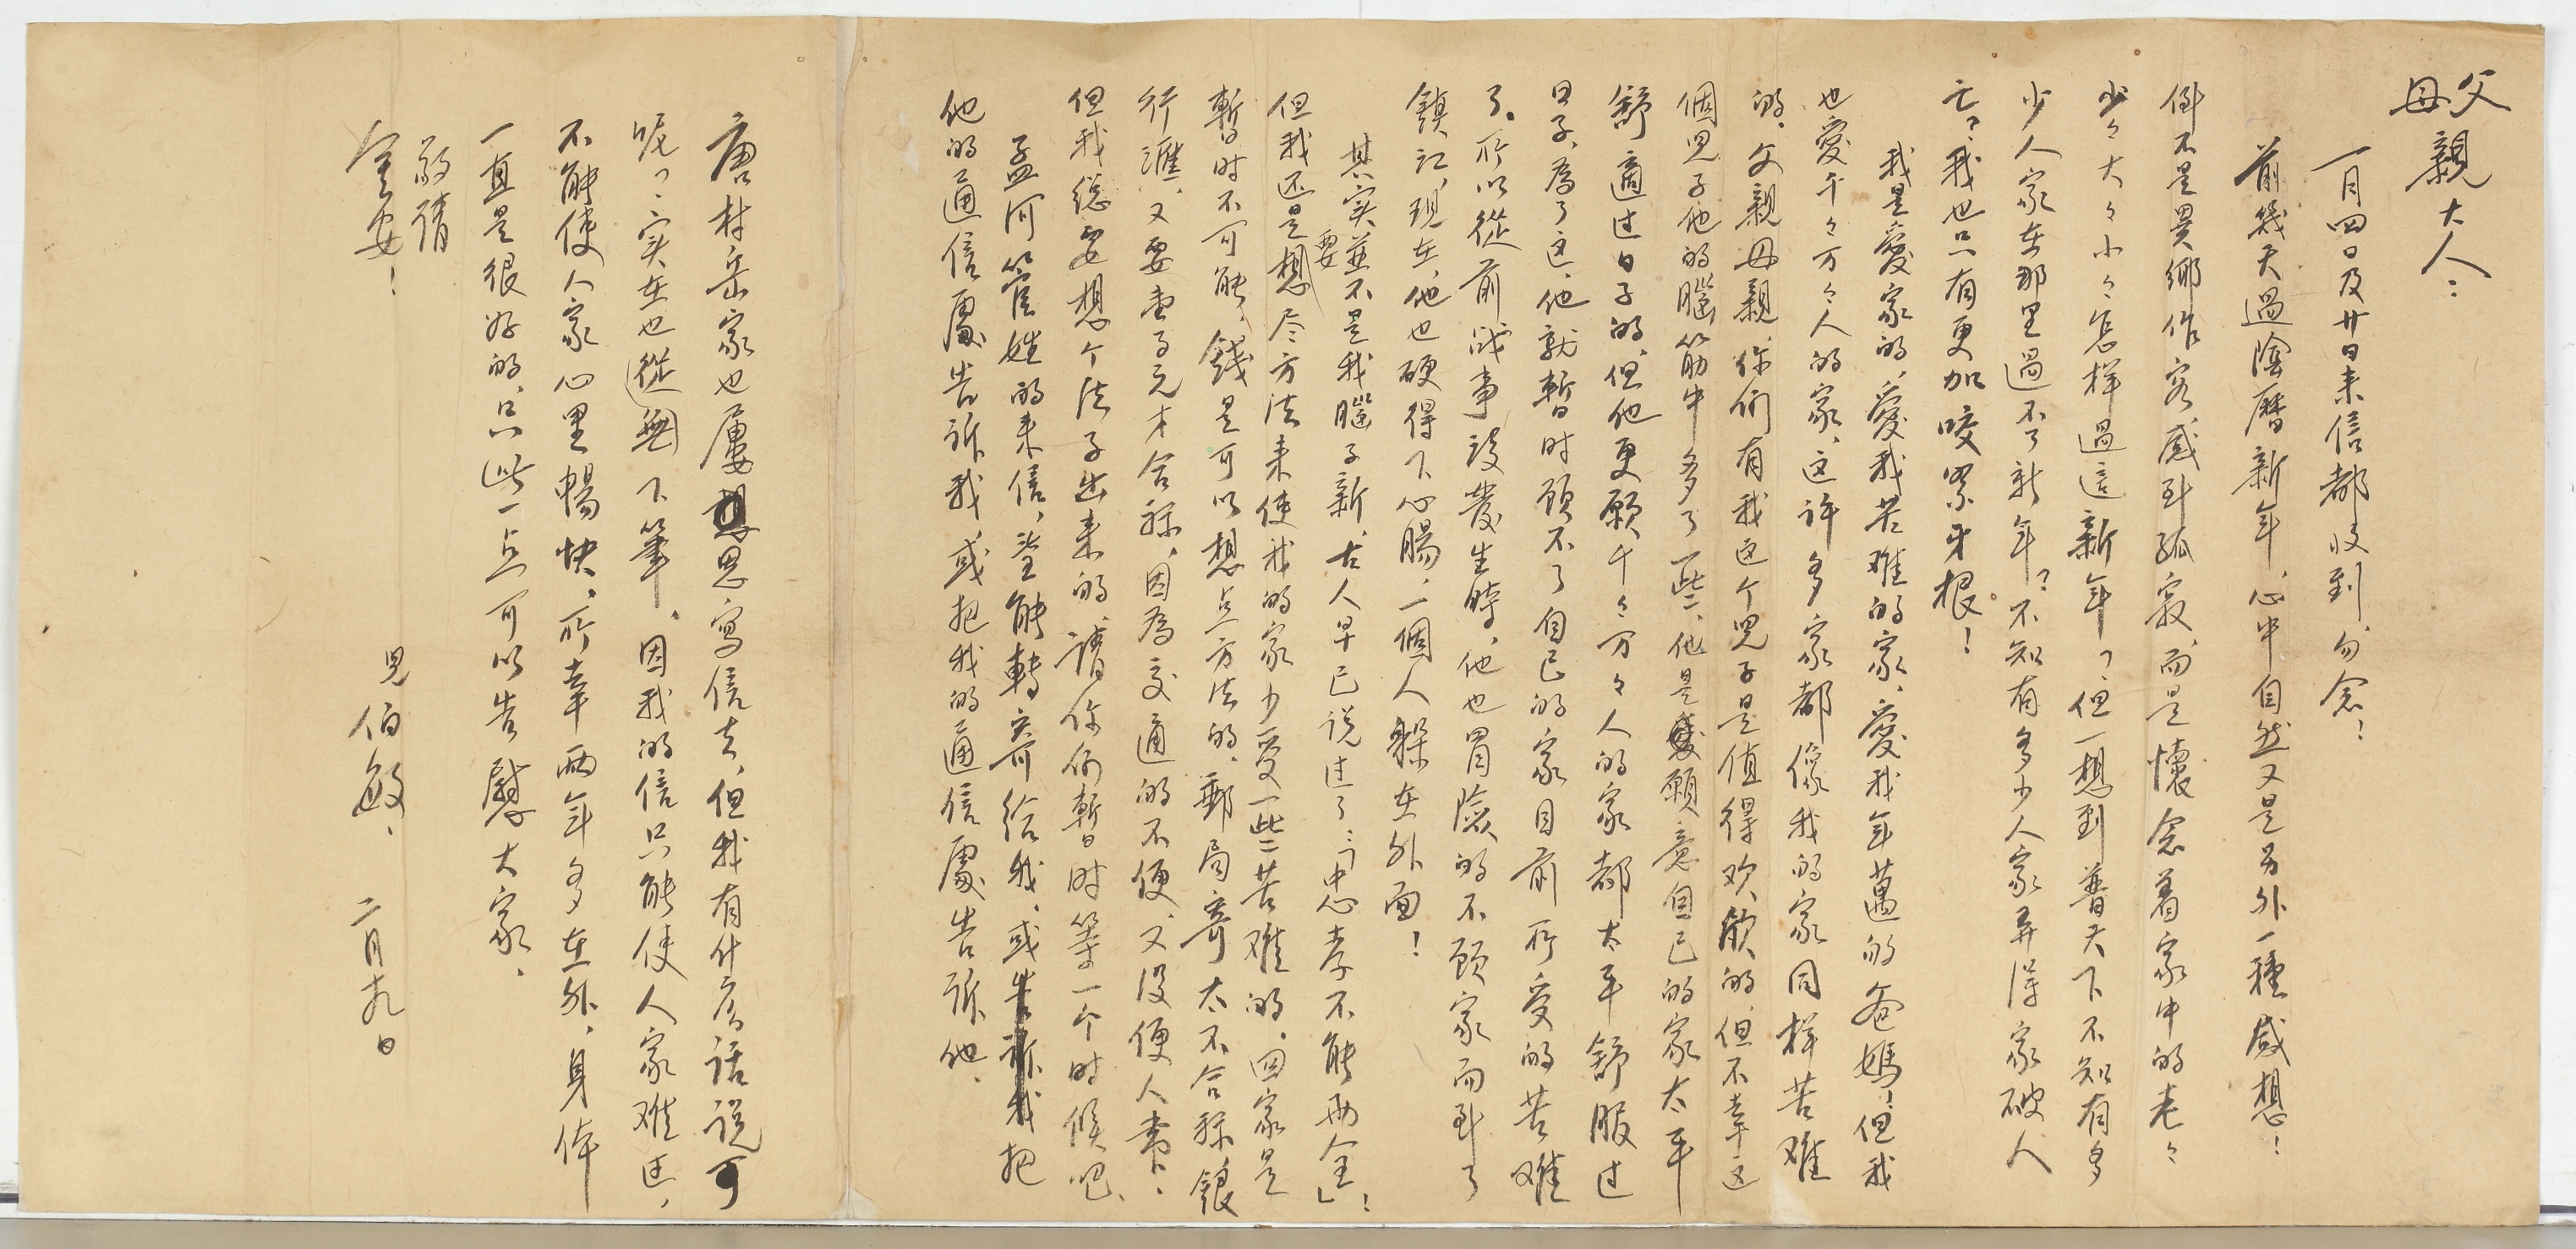 父母親大人：
一月四日及廿日来信都收到，勿念！
前幾天過陰曆新年，心中自然又是另外一種感想！
倒不是異鄉作客，感到孤寂，而是懷念着家中的老々
少々大々小々怎样過這新年？但一想到普天下不知有多
少人家在那里過不了新年？不知有多少人家弄得家破人
亡？我也只有更加咬紧牙根！
我是愛家的，愛我苦难的家，愛我年邁的爸媽，但我
也愛千々万々人的家，这许多家都像我的家同样苦难
的，父親母親，你们有我这个児子是值得欢欣的，但不幸这
個児子他的腦筋中多了一些，他是願意自己的家太平
舒適过日子的，但他更願千々万々人的家都太平舒服过
日子，為了这，他就暫时顾不了自己的家目前所受的苦难
了。所以從前战事設發生時，他也冒險的不顾家而到了
鎮江，現在，他也硬得下心腸，一個人躲在外面！
其实並不是我腦子新，古人早已说过了「忠孝不能两全」！
但我还是要想尽方法来使我的家少受一些苦难的，回家是
暫时不可能，錢是可以想点方法的，郵局寄太不合称，銀
行滙，又要壹百元才合称，因為交通的不便，又沒便人帶，
但我総要想个法子出来的，請你们暫时等一个时候吧，
孟河管姓的来信，望能轉寄給我，或把
他的通信處告訴我，或把我的通信處告訴他，
唐村岳家也屢思寫信去，但我有什広话説可
呢？实在也從無下筆，因我的信只能使人家难过，
不能使人家心里暢快，所幸两年多在外，身体
一直是很好的，只此一点可以告慰大家，
敬請
金安！
児伯敏，二月九日